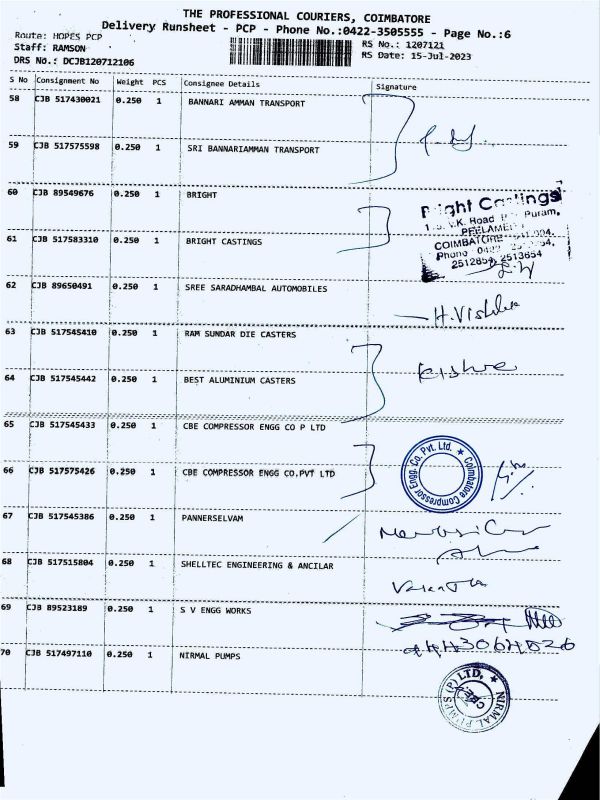 THE PROFESSIONAL COURIERS, COIMBATORE
Delivery Runsheet - PCP - Phone No.:0422-3505555 - Page No.:6
Route: HOPES PCP
Staff: RAMSON
DRS No.: DCJB120712106
RS No.: 1207121
RS Date: 15-Jul-2023
S No Consignment No Weight PCS Consignee Details Signature
58 CJB 517430021 0.250 1 BANNARI AMMAN TRANSPORT
59 CJB 517575598 0.250 1 SRI BANNARIAMMAN TRANSPORT
60 CJB 89549676 0.250 1 BRIGHT
Bright Castings
K. Road Puram,
PEELAMEDU
COIMBATORE
Phone
2512854, 2513654
61 CJB 517583310 0.250 1 BRIGHT CASTINGS
62 CJB 89650491 0.250 1 SREE SARADHAMBAL AUTOMOBILES
H.Vishnu
63 CJB 517545410 0.250 1 RAM SUNDAR DIE CASTERS
Kishore
64 CJB 517545442 0.250 1 BEST ALUMINIUM CASTERS
65 CJB 517545433 0.250 1 CBE COMPRESSOR ENGG CO P LTD
Coimbatore Compressor Engg. Co. Pvt. Ltd.
66 CJB 517575426 0.250 1 CBE COMPRESSOR ENGG CO.PVT LTD
67 CJB 517545386 0.250 1 PANNERSELVAM
68 CJB 517515804 0.250 1 SHELLTEC ENGINEERING & ANCILAR
69 CJB 89523189 0.250 1 S V ENGG WORKS
70 CJB 517497110 0.250 1 NIRMAL PUMPS
NIRMAL PUMPS (P) LTD,